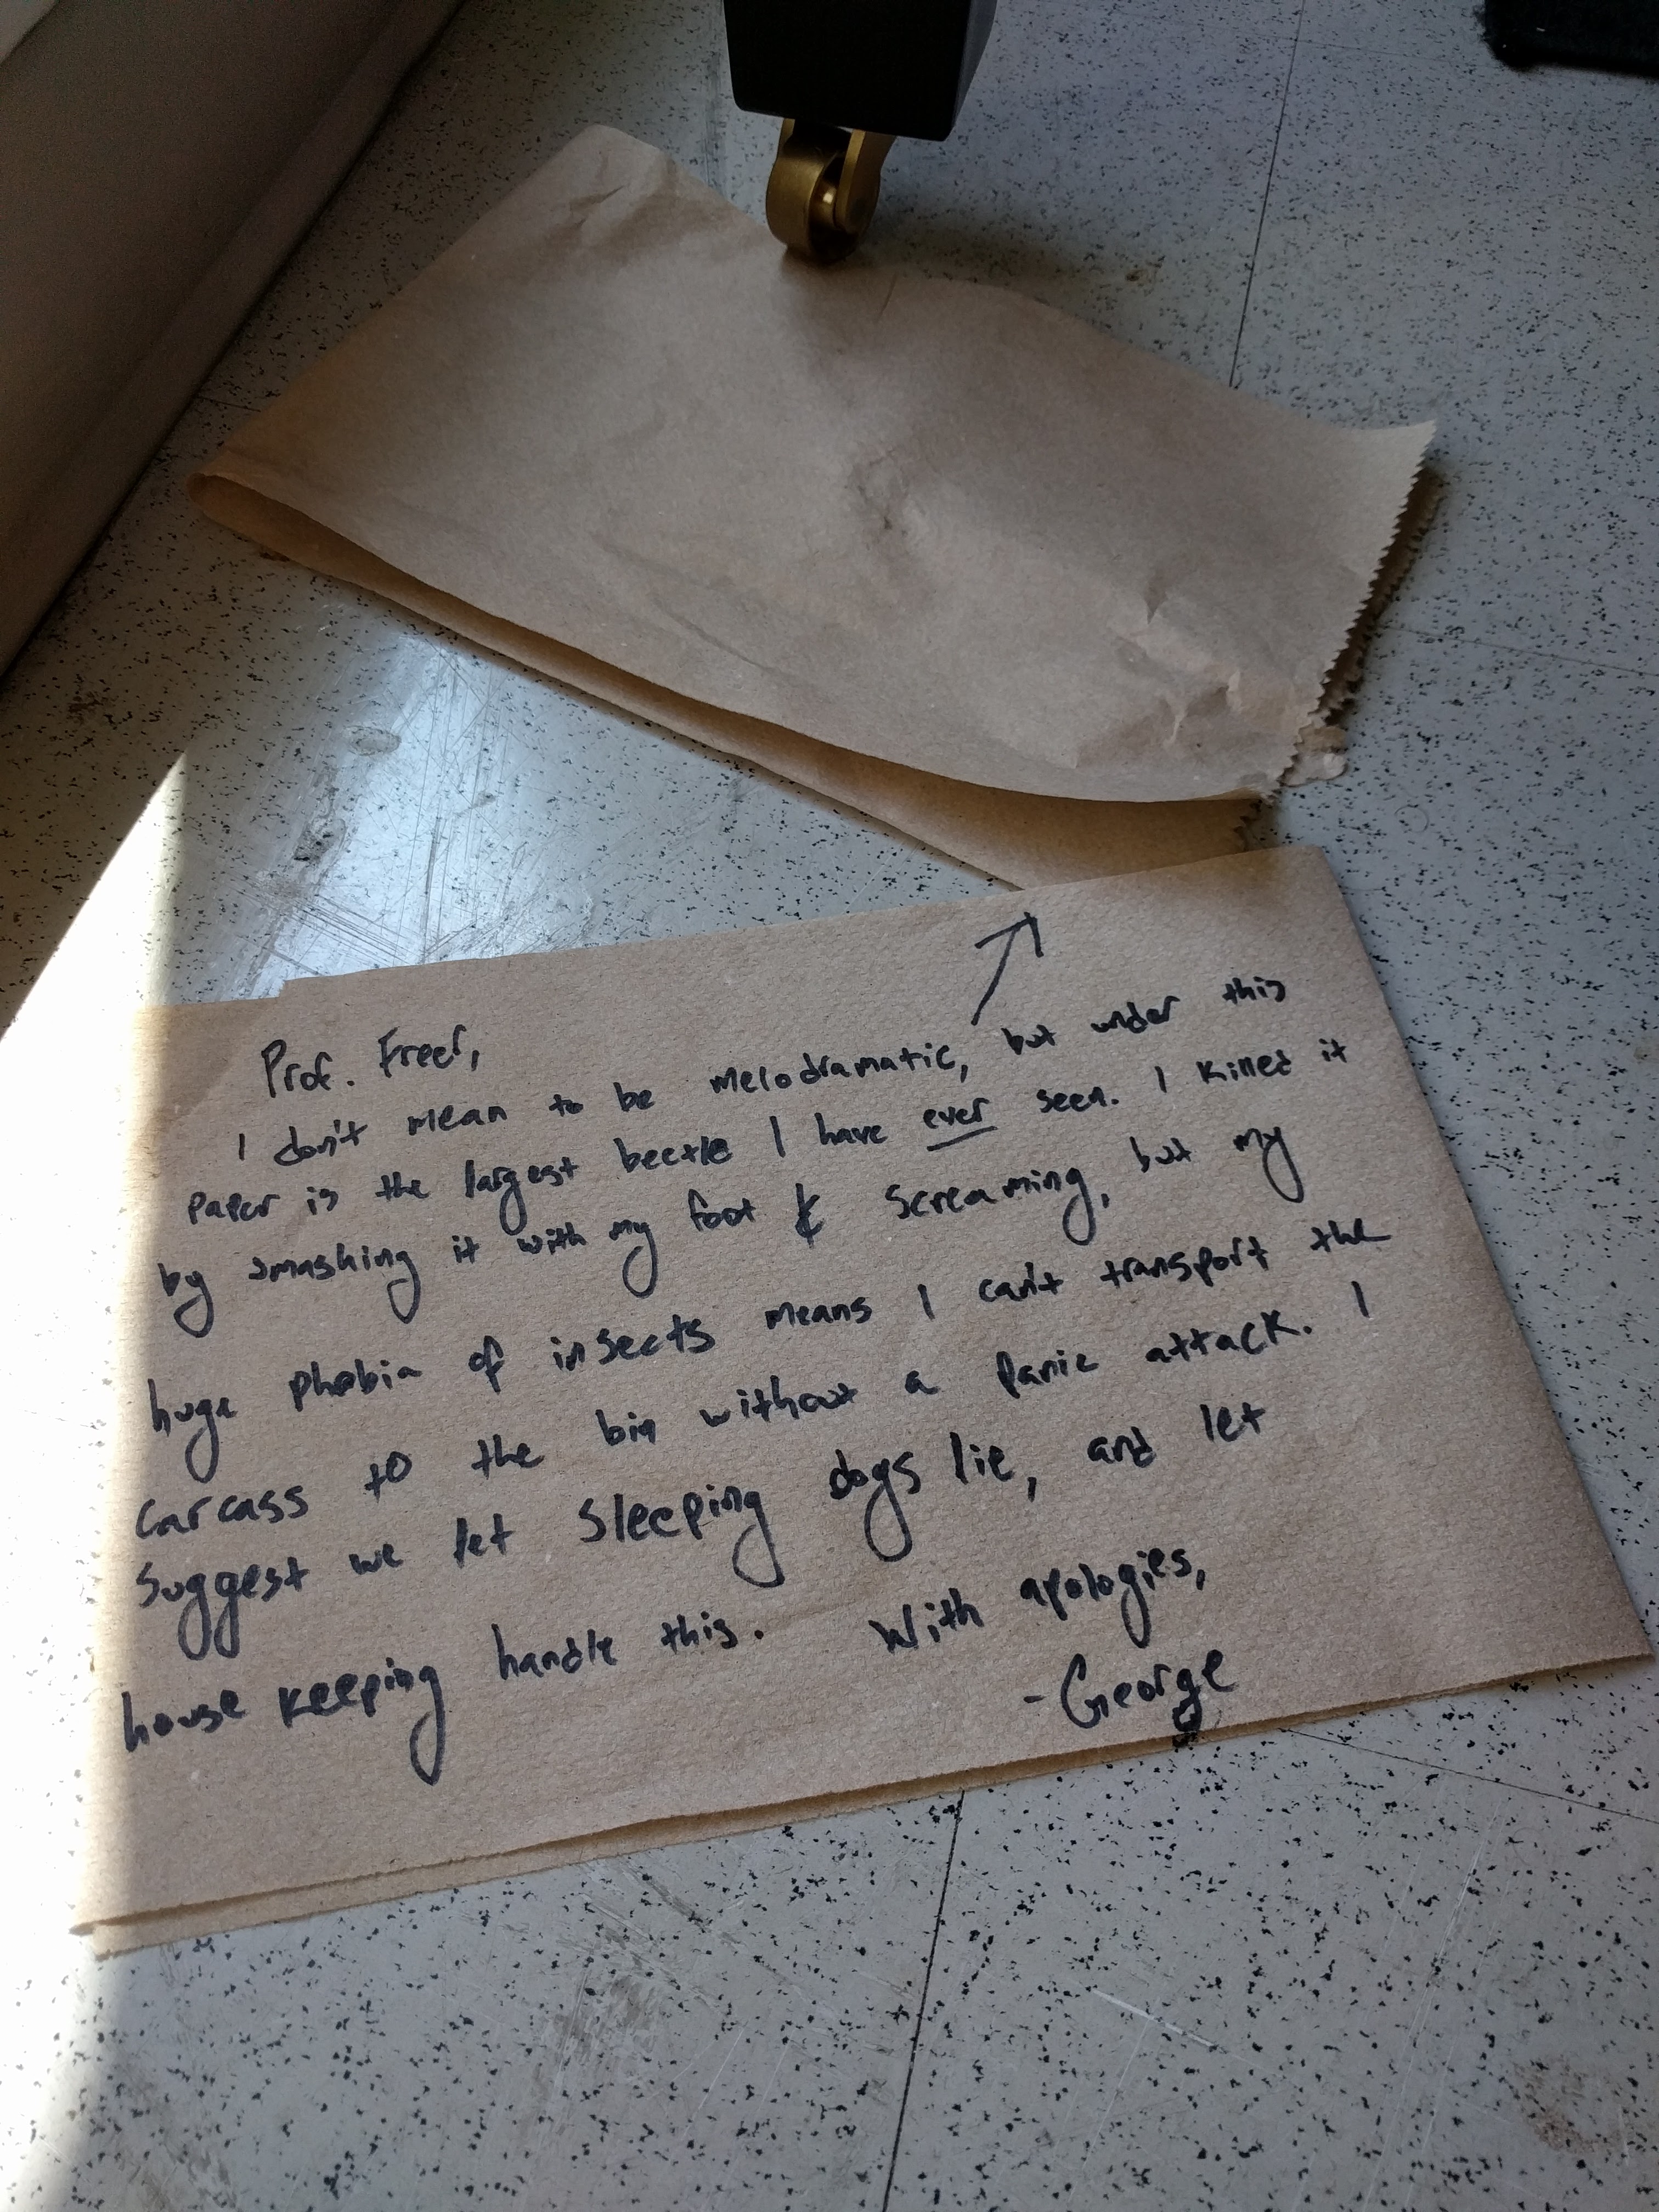 Prof. Freer,
I don't mean to be melodramatic, but under this
paper is the largest beetle I have ever seen. I killed it
by smashing it with my foot & screaming, but my
huge phobia of insects means I can't transport the
carcass to the bin without a panic attack. I
suggest we let sleeping dogs lie, and let
house keeping handle this. With apologies,
-George